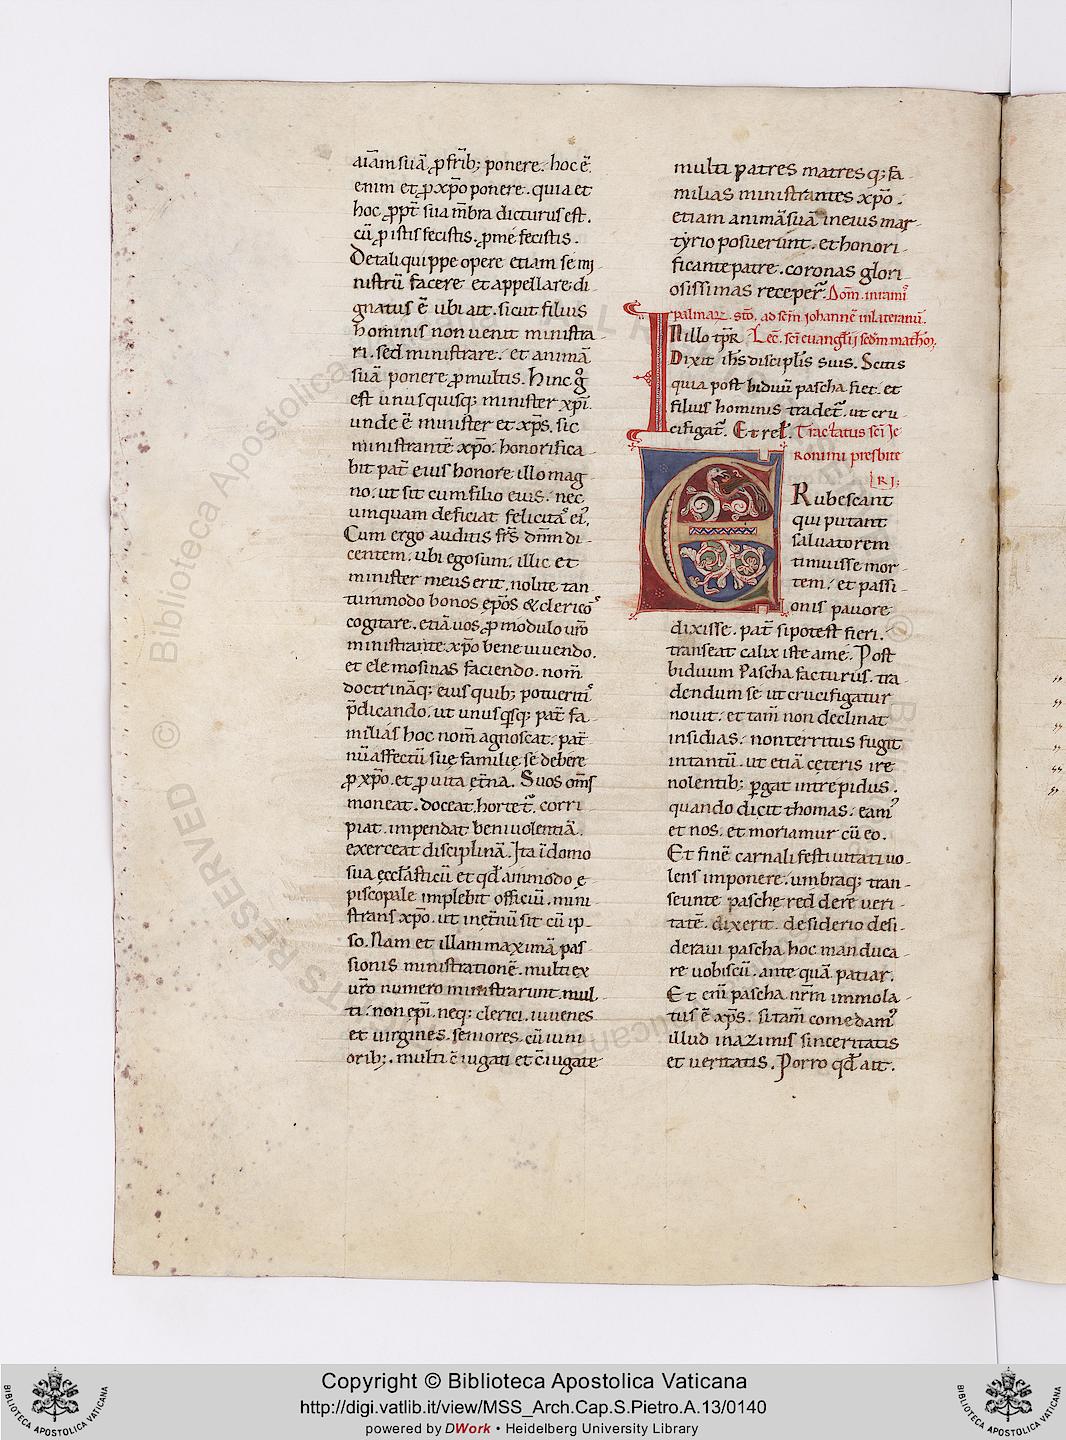 aiam suā ꝓ frib; ponere. hoc ē
enim et ꝓ xp̄o ponere. quia et
hoc ꝓpt̄ sua m̄bra dicturus est.
cū ꝓ istis fecistis. ꝓ me fecistis.
De tali quippe opere etiam se mi
nistrū facere et appellare di
gnatus ē ubi ait. sicut filius
hominis non uenit ministra
ri. sed ministrare. et animā
suā ponere ꝓ multis. Hinc g̊
est unusquisq; minister xp̄i.
unde ē minister et xp̄s. sic
ministrantē xp̄o. honorifica
bit pat̄ eius honore illo mag
no. ut sit cum filio eius. nec
umquam deficiat felicitas ei.
Cum ergo auditis frs̄ dn̄m di
centem. ubi ego sum. illic et
minister meus erit. nolite tan
tummodo bonos ep̄os & clericos
cogitare. etiā uos ꝓ modulo ur̄o
ministrante xp̄o bene uiuendo.
et elemosinas faciendo. nom̄
doctrināq; eius quib; potueritis
p̄dicando. ut unusqsq; pat̄ fa
milias hoc nom̄ agnoscat. pat̄
nū affectū suę familię se debere
ꝓ xp̄o. et ꝓ uita et̄na. Suos om̄s
moneat. doceat. hortet̄. corri
piat. impendat beniuolentiā.
exerceat disciplinā. Ita ī domo
sua ęccl̄asticū et qd̄ ammodo ę
piscopale implebit officiū. mini
strans xp̄o. ut inet̄nū sit cū ip
so. Nam et illam maximā pas
sionis ministrationē. multi ex
ur̄o numero ministrarunt. mul
ti. non ep̄i. neq; clerici. iuuenes
et uirgines. seniores. cū iuni
orib;. multi c̄iugati et c̄iugate
multi patres matres q; fa
milias ministrantes xp̄o.
etiam animā suā in eius mar
tyrio posuerunt. et honori
ficante patre. coronas glori
osissimas receper̄. Dom̄. in rami
palmarꝝ. stō. ad scm̄ iohannē in lateranū.
IN illo tp̄r. Lec̄. sc̄i euanglīj scd̄m mathœ̄.
Dixit ih̄s disciplis̄ suis. Scitis
quia post biduū pascha fiet. et
filius hominis tradet̄. ut cru
cifigat̄. Et rel̄. Tractatus sc̄i Ie
ronimi presbite
RI;
ERubescant
qui putant
saluatorem
timuisse mor
tem. et passi
onis pauore
dixisse. pat̄ si potest fieri.
transeat calix iste a me. Post
biduum Pascha facturus. tra
dendum se ut crucifigatur
nouit. et tam̄ non declinat
insidias. non territus fugit
intantū. ut etiā cęteris ire
nolentib; ꝑgat intrepidus.
quando dicit thomas. eamus
et nos. et moriamur cū eo.
Et finē carnali festiuitati uo
lens imponere. umbraq; tran
seunte paschę reddere ueri
tatē. dixerit. desiderio desi
deraui pascha hoc manduca
re uobiscū. ante quā patiar.
Et eni pascha nrm̄ immola
tus ē xp̄s. si tam̄ comedamus
illud in azimis sinceritatis
et ueritatis. Porro qd̄ ait.
BIBLIOTECA APOSTOLICA VATICANA
Copyright © Biblioteca Apostolica Vaticana
http://digi.vatlib.it/view/MSS_Arch.Cap.S.Pietro.A.13/0140
powered by DWork • Heidelberg University Library
BIBLIOTECA APOSTOLICA VATICANA